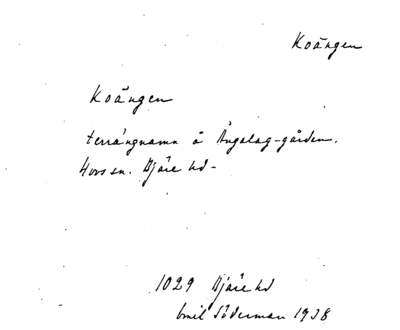 Koängen
Koängen
terrängnamn å Ängalag-gården.
Hovs sn. Bjäre hd-
1029 Bjäre hd
Emil Söderman 1938